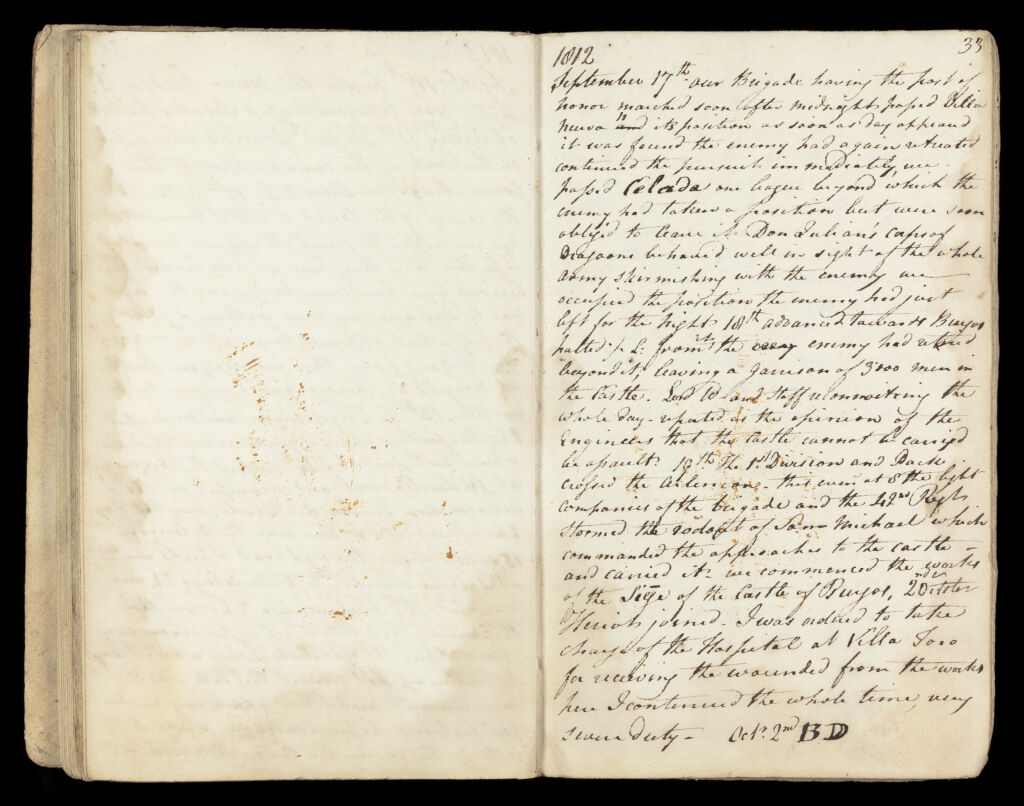 33
1812
September 17th our Brigade having the post of
honor marched soon after midnight passed Villa
Nueva and its position as soon as day appeard
it was found the enemy had again retreated
continued the pursuit immediately, we
passed Celada one league beyond which the
enemy had taken a position but were soon
oblig'd to leave it. Don Julian's corps of
Dragoons behaved well in sight of the whole
Army skirmishing with the enemy we
occupied the position the enemy had just
left for the night. 18th advanced towards Burgos
halted L: from it, the enemy had retired
beyond it, leaving a garrison of 3000 men in
the Castle. Lord W and Staff reconnoitring the
whole day - reported as the opinion of the
Engineers that the Castle cannot be carried
be assault. 19th The 1st Division and Pack
crossed the Arlencion - this even at 8 the light
companies of the brigade and the 42nd Regt
Stormed the rodout of San Michael which
commanded the approaches to the castle -
and carried it - we commenced the works
of the Siege of the Castle of Burgos, 2nd October
Heriot joined - I was ordered to take
charge of the Hospital at Villa Toro
for receiving the wounded from the works
here I continued the whole time, very
severe duty - Octr. 2nd BD